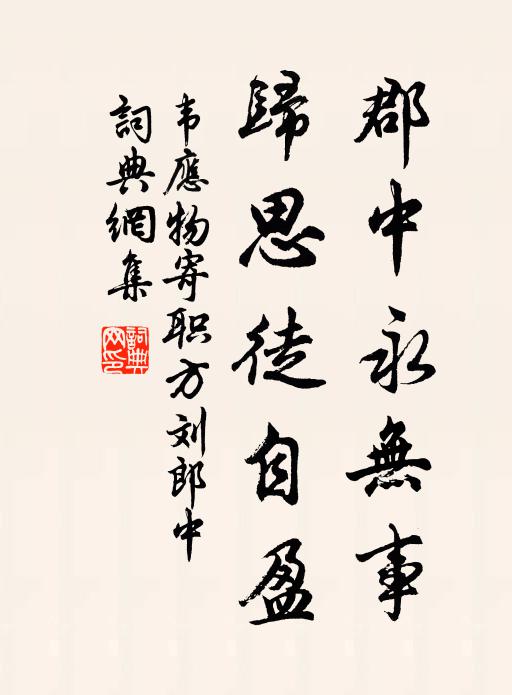 郡中永無事
歸思徒自盈
韦應物寄职方刘郎中
詞典網集
詞典網印